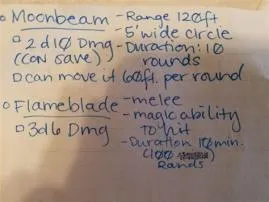 Moonbeam - Range 120ft
- 5' wide circle
2d10 Dmg - Duration: 10
(CON save) rounds
can move it 60ft. per round
Flameblade - melee
- magic ability
3d6 Dmg to hit
- Duration 10 min.
(100
Rands